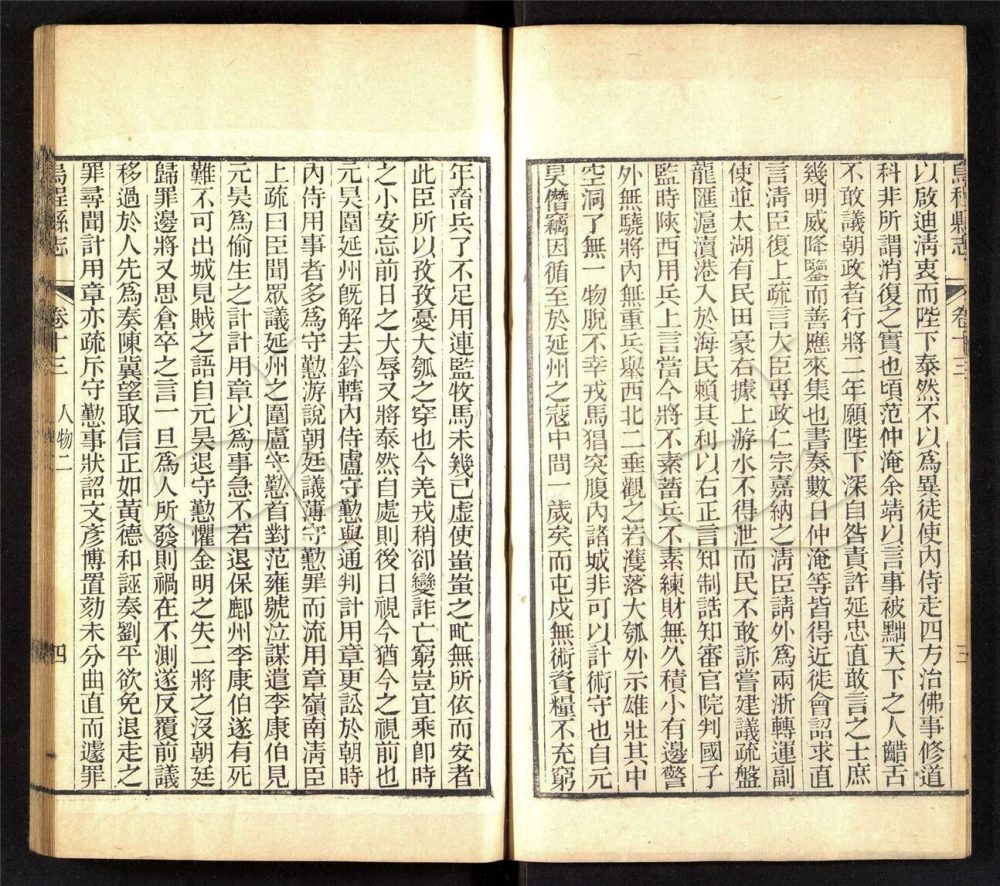 烏程縣志 卷十三 三
以啟迪淸衷而陛下泰然不以為異徒使內侍走四方治佛事修道
科非所謂消復之實也頃范仲淹余靖以言事被黜天下之人齰舌
不敢議朝政者行將二年願陛下深自咎責許延忠直敢言之士庶
幾明威降鑒而善應來集也書奏數日仲淹等皆得近徙會詔求直
言淸臣復上疏言大臣專政仁宗嘉納之淸臣請外為兩浙轉運副
使並太湖有民田豪右據上游水不得泄而民不敢訴嘗建議疏盤
龍匯滬瀆港入於海民賴其利以右正言知制誥知審官院判國子
監時陝西用兵上言當今將不素蓄兵不素練財無久積小有邊警
外無驍將內無重兵舉西北二垂觀之若濩落大瓠外示雄壯其中
空洞了無一物脫不幸戎馬猖突腹內諸城非可以計術守也自元
昊僭竊因循至於延州之寇中間一歲矣而屯戍無術資糧不充窮
年畜兵了不足用連監牧馬未幾已虛使蚩蚩之甿無所依而安者
此臣所以孜孜憂大瓠之穿也今羌戎稍卻變詐亡窮豈宜乘卽時
之小安忘前日之大辱又將泰然自處則後日視今猶今之視前也
元昊圍延州旣解去鈐轄內侍盧守懃與通判計用章更訟於朝時
內侍用事者多為守懃游說朝廷議薄守懃罪而流用章嶺南淸臣
上疏曰臣聞眾議延州之圍盧守懃首對范雍號泣謀遣李康伯見
元昊為偷生之計計用章以為事急不若退保鄜州李康伯遂有死
難不可出城見賊之語自元昊退守懃懼金明之失二將之沒朝廷
歸罪邊將又思倉卒之言一旦為人所發則禍在不測遂反覆前議
移過於人先為奏陳冀望取信正如黃德和誣奏劉平欲免退走之
罪尋聞計用章亦疏斥守懃事狀詔文彥博置劾未分曲直而遽罪
烏程縣志 卷十三 人物二 四